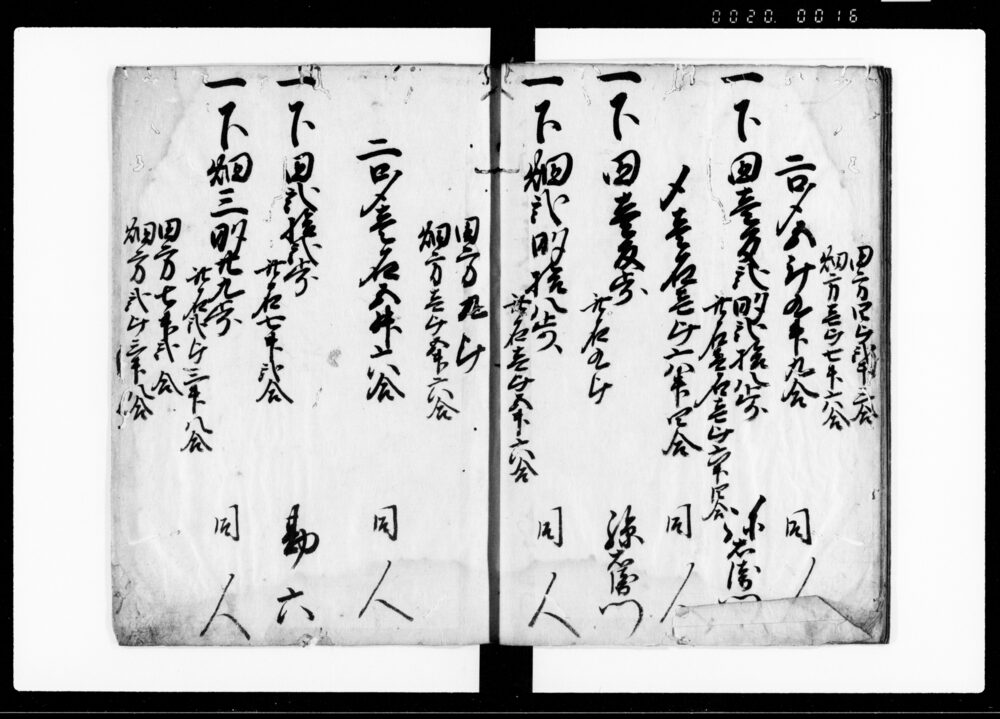 0020. 0016
田方四斗弐升三合
畑方壱斗七升六合
二口〆五斗九升九合 同人
一下田壱反弐畝弐拾八歩
此石壱石壱斗六升四合
右衛門
〆壱石壱斗六升四合 同人
一下田壱反歩
此石九斗
右衛門
一下畑弐畝拾八歩
此石壱斗五升六合
同人
田方九斗
畑方壱斗五升六合
二口〆壱石五升六合 同人
一下田弐拾歩
此石七升弐合
勘六
一下畑三畝廿九歩
此石弐斗三升八合
同人
田方七升弐合
畑方弐斗三升八合